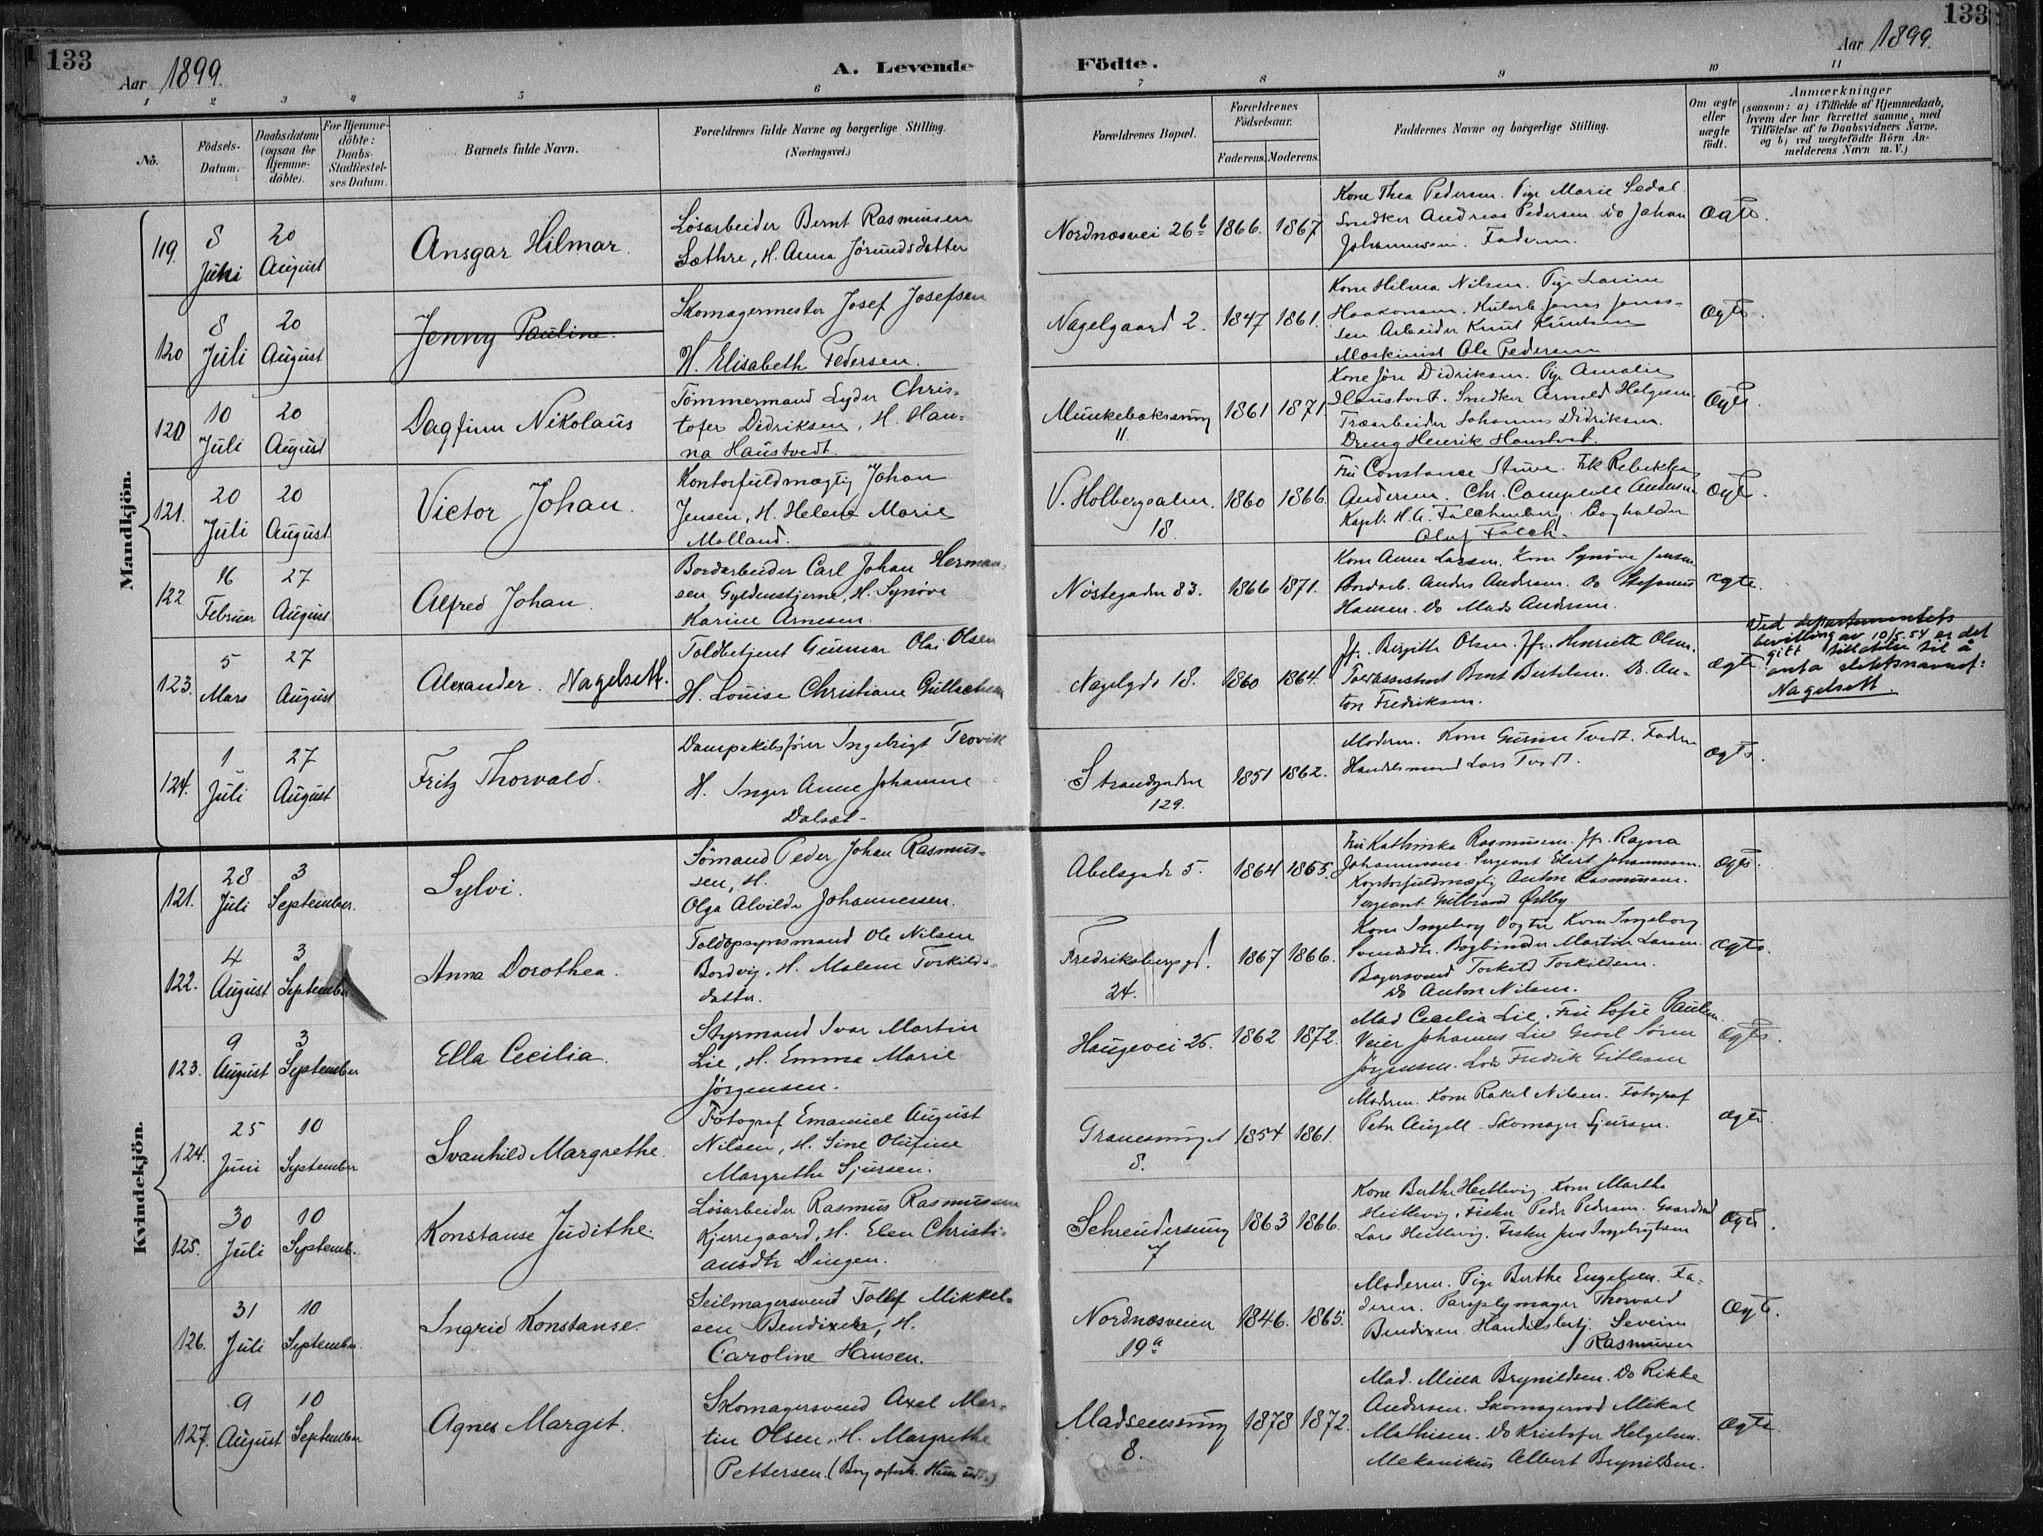 133
Aar 1899.
A. Levende Födte.
Aar 1899.
133
1 2 3 4 5 6 7 8 9 10 11
No.
Födsels-Datum.
Daabsdatum (ogsaa for Hjemmedöbte).
For Hjemmedöbte: Daabs-Stadfæstelses Datum.
Barnets fulde Navn.
Forældrenes fulde Navne og borgerlige Stilling. (Næringsvei.)
Forældrenes Bopæl.
Forældrenes Födselsaar.
Faderens. Moderens.
Faddernes Navne og borgerlige Stilling.
Om ægte eller uægte födt.
Anmærkninger
(saasom: a) i Tilfælde af Hjemmedaab, hvem der har forrettet samme, med Tilföielse af to Daabsvidners Navne, og b) ved uægtefödte Börn Anmelderens Navn m. V.)
Mandkjön.
119. 8 Juni 20 August
Ansgar Hilmar.
Løsarbeider Bernt Rasmussen
Sæthre, H. Anna Jørundsdatter
Nordnæsvei 26b 1866. 1867
Kone Thea Pedersen. Pige Marie Sedal
Snedker Andreas Pedersen. Do Johan
Johannesen. Faderen.
ægte.
120 8 Juli 20 August
Jenny Pauline.
Skomagermester Josef Josefsen
H. Elisabeth Pedersen.
Nagelgaard 2. 1847 1861.
Kone Hilma Nilsen. Pige Larine
Haakonsen. Kularb. Jonas Jonas-
sen Arbeider Knut Knutsen
Maskinist Ole Pedersen
ægte.
120 10 Juli 20 August
Dagfinn Nikolaus
Tømmermand Lyder Chris-
tofer Didriksen, H. Han-
na Haustvedt.
Munkebaksmug 11. 1861 1871.
Kone Jøre Didriksen. Pige Amalie
Haustvedt. Snedker Arnold Helgesen.
Træarbeider Johannes Didriksen.
Dreng Henrik Haustvedt.
Ægte.
121. 20 Juli 20 August
Victor Johan.
Kontorfuldmægtig Johan
Jensen, H. Helene Marie
Molland.
V. Holbergsalm. 18. 1860 1866.
Fru Constance Stuve. Frk Rebekka
Andersen. Chr. Campbell Andersen
Kapt. H. C. Falchenberg. Bogholder
Olaf Falch.
ægte.
122 16 Februar 27 August
Alfred Johan.
Bordarbeider Carl Johan Herman-
sen Gyldenstjerne, H. Synøve
Karine Arnesen.
Nøstegaden 83. 1866 1871.
Kone Anna Larsen. Kone Synøve Jensen
Bordarb. Anders Andersen. Do Stefanus
Hansen. Do Mads Andersen.
ægte.
123. 5 Mars 27 August
Alexander. Nagelsett.
Toldbetjent Gunnar Olai Olsen
H. Louise Christiane Gullachsen
Nagelgd. 18. 1860 1864.
Jfr. Birgitte Olsen. Jfr. Henriette Olsen.
Toldassistent Bernt Bertelsen. Do. An-
ton Fredriksen.
ægte
Ved departementets
bevilling av 10/5.54 er det
gitt tillatelse til å
anta slektsnavnet:
Nagelsett
124. 1 Juli 27 August
Fritz Thorvald.
Dampskibsfører Ingebrigt Trovik
H. Inger Anne Johanne
Dalsæt-
Strandgaden 129. 1851 1862.
Moderen. Kone Gurine Tvedt. Faderen
Handelsmand Lars Tvedt.
ægte.
Kvindekjön.
121. 28 Juli 3 September.
Sylvi.
Sømand Peder Johan Rasmus-
sen, H.
Olga Alvilde Johannessen.
Abelsgade 5. 1864 1865.
Fru Kathinka Rasmussen. Jfr. Ragna
Johannessen. Sergeant Elert Johannessen.
Kontorfuldmægtig Anton Rasmussen.
Sergeant Gulbrand Østby
ægte.
122. 4 August 3 September
Anna Dorothea.
Toldopsynsmand Ole Nilsen
Bordvig, H. Malene Torkilds-
datter.
Fredriksbergsgd. 24. 1867 1866.
Kone Ingeborg Vogter Kone Ingeborg
Svendsdtr. Bogbinder Martin Larsen
Bagersvend Torkild Torkildsen.
Do Anton Nilsen.
ægte.
123. 9 August 3 September
Ella Cecilia.
Styrmand Ivar Martin
Lie, H. Emma Marie
Jørgensen.
Haugevei 25. 1862 1872.
Mad Cecilia Lie. Fru Sofie Paulsen.
Veier Johannes Lie Søren
Jørgensen. Lods Fredrik Gittesen
Ægte.
124. 25 Juni 10 September
Svanhild Margrethe.
Fotograf Emanuel August
Nilsen, H. Sine Olufine
Margrethe Sjursen.
Granesmuget 8. 1854 1861.
Moderen. Kone Rakel Nilsen. Fotograf
Petr Angell. Skomager Sjursen.
ægte.
125. 30 Juli 10 Septemb.
Konstanse Judithe.
Løsarbeider Rasmus Rasmussen
Kjerregaard, H. Elen Christi-
ansdtr Dingen.
Schreudersmug 7 1863 1866.
Kone Berthe Heitlevig. Kone Martha
Heitlevig, Fisker Peder Pedersen. Gaardmd
Lars Heitlevig. Fisker Jens Ingebrigtsen
Ægte.
126. 31 Juli 10 September.
Ingrid Konstanse.
Seilmagersvend Tollef Mikkel-
sen Bendixen, H.
Caroline Hansen.
Nordnæsveien 19a 1846. 1865.
Moderen. Pige Berthe Engelsen. Fa-
deren. Paraplymager Thorvald
Bendixen Handelsbetj. Severin
Rasmussen
Ægte.
127. 9 August 10 September
Agnes Margit.
Skomagersvend Axel Mar-
tin Olsen, H. Margrethe
Pettersen.
Madsensmug 8. 1878 1872.
Mad. Milla Brynildsen. Do Rikke
Andersen. Skomagersvd Mikal
Mathisen. Do Kristofer Helgesen.
Mekanikus Albert Brynildsen.
Ægte.